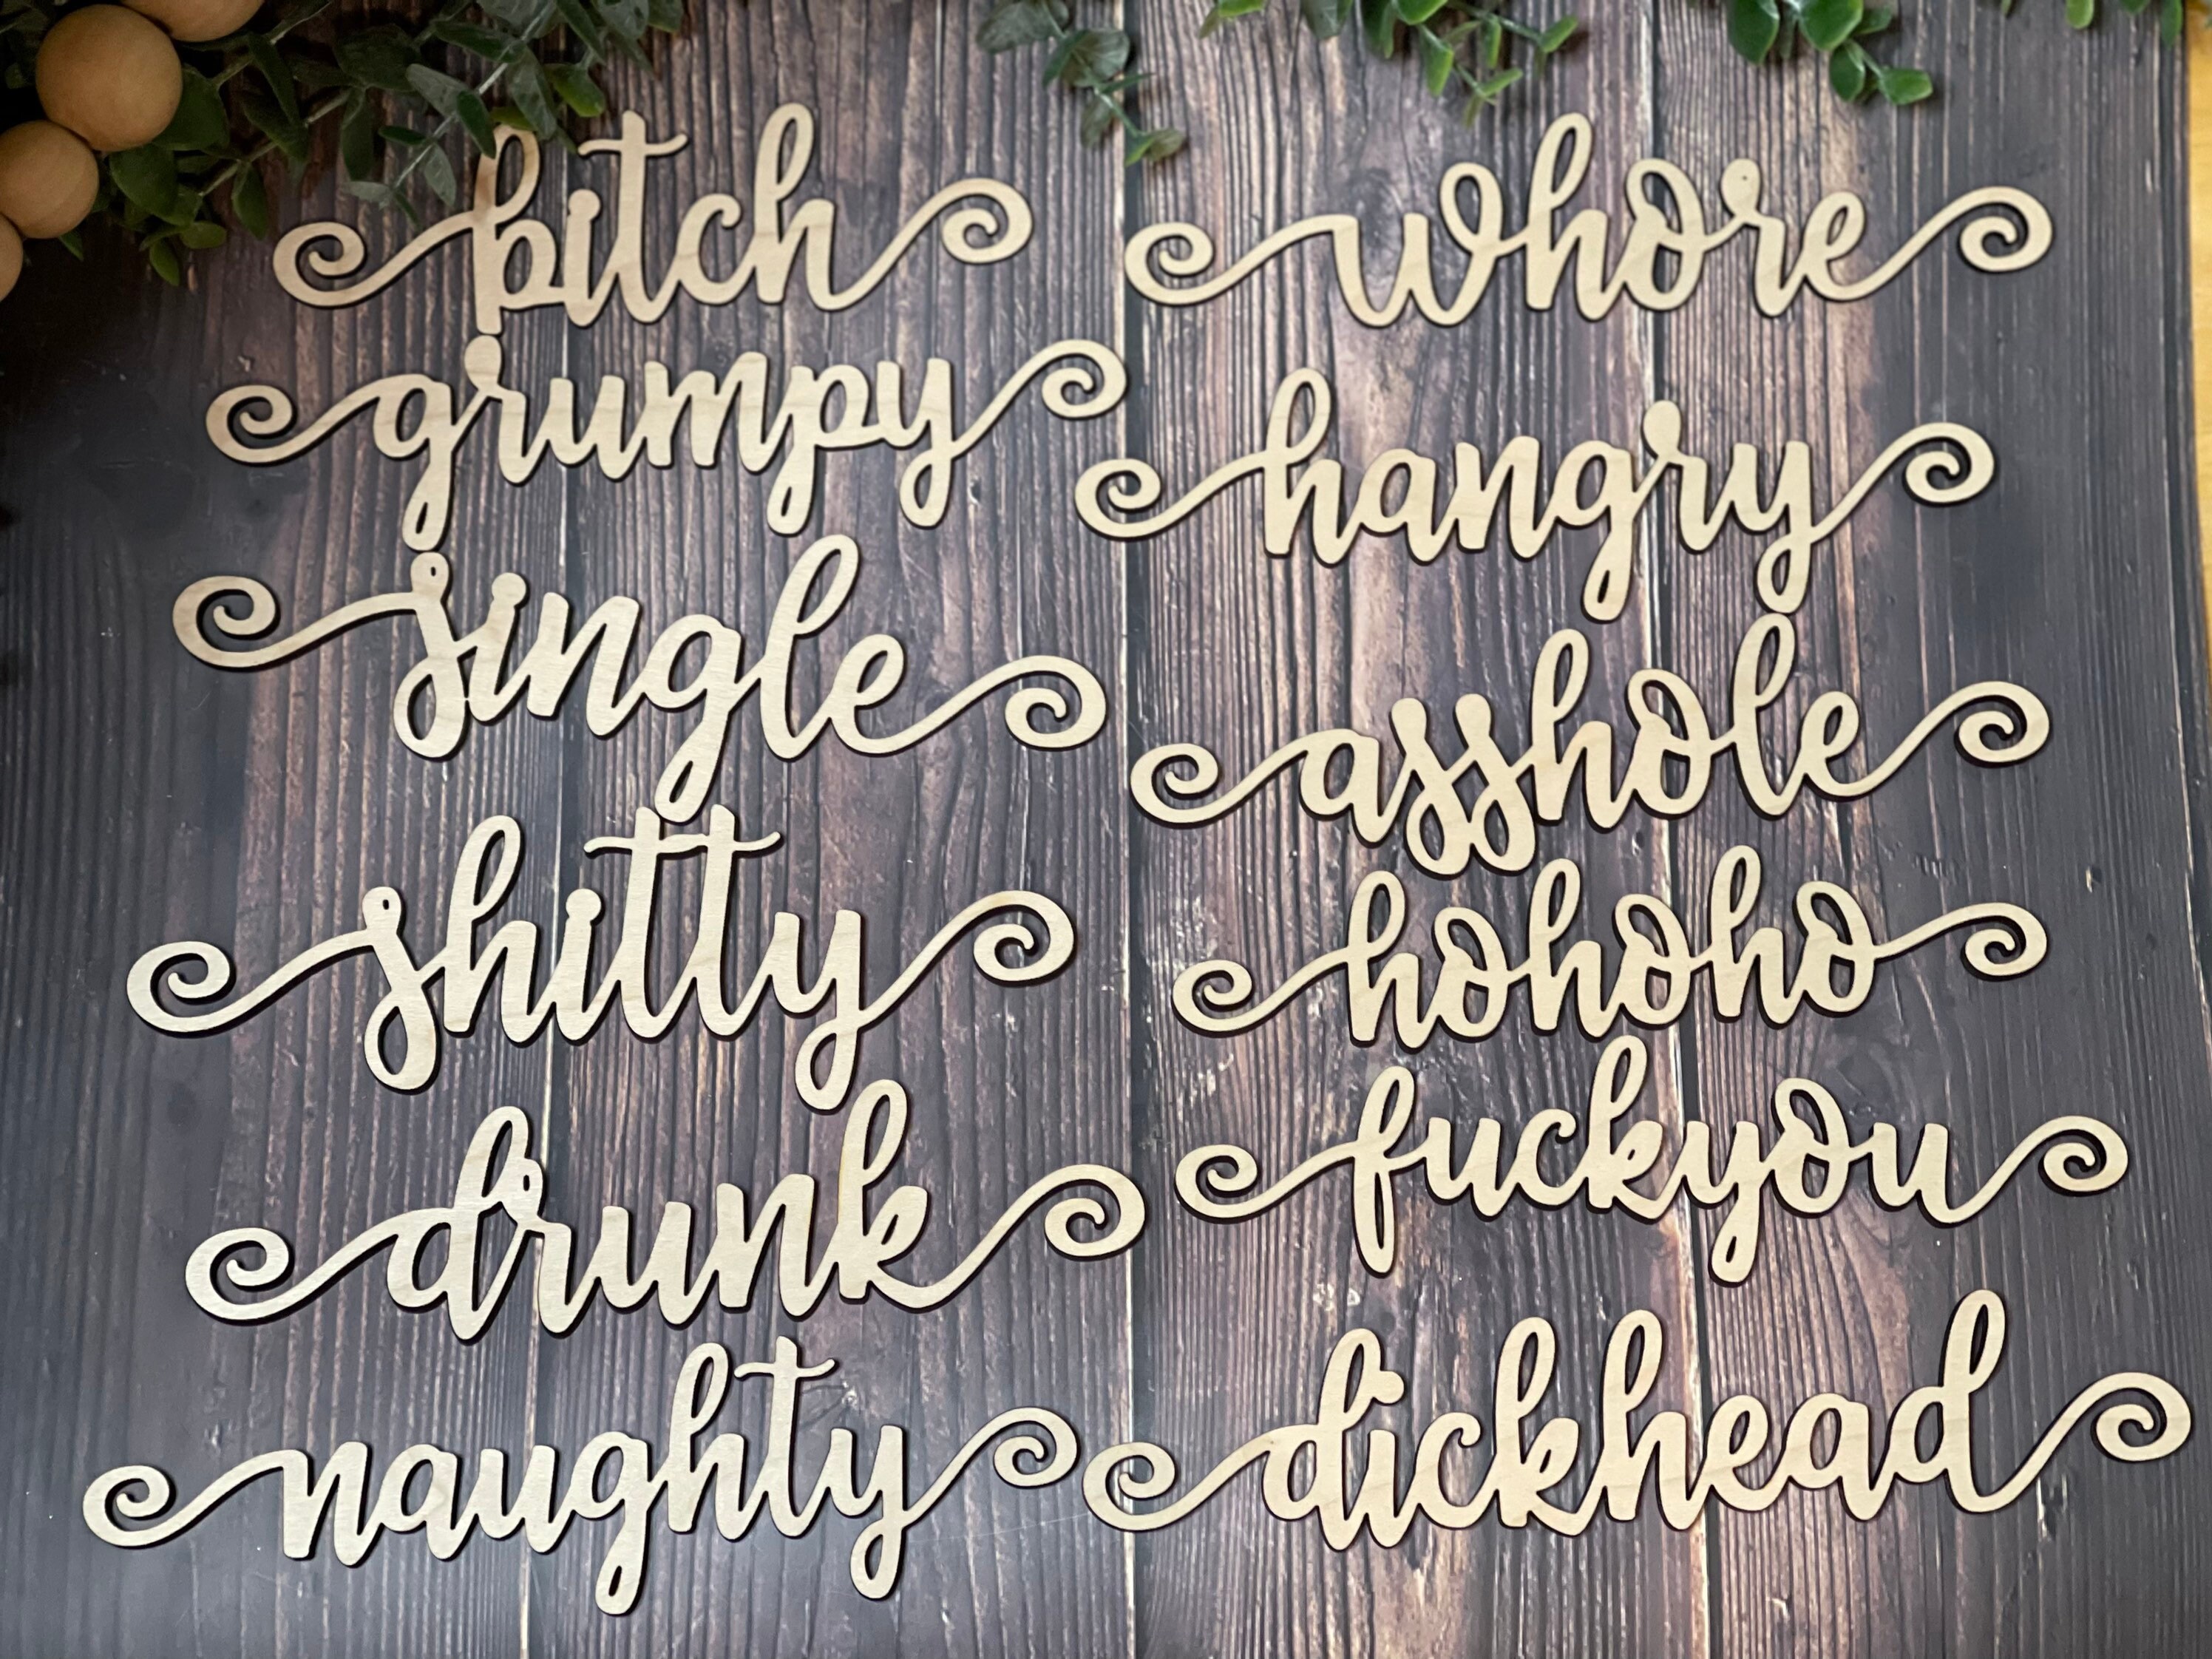 bitch
grumpy
single
shitty
drunk
naughty
whore
hangry
asshole
hohoho
fuckyou
dickhead